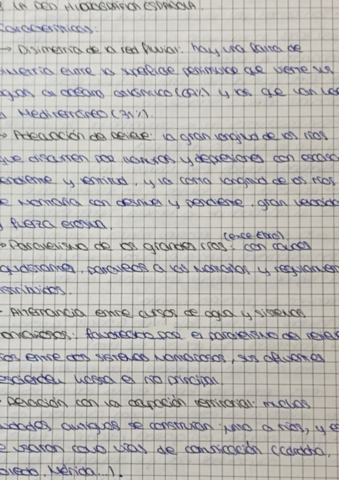 LA RED HIDROGRÁFICA ESPAÑOLA.
Características:
→ Disimetría de la red fluvial: hay una falta de
simetría entre la superficie peninsular que vierte sus
aguas al océano atlántico (69%) y las que van
Mediterráneo (31%).
→ de relieve: la gran longitud de los ríos
que discurren por llanuras y depresiones con escasa
pendiente y, y la corta longitud de los ríos
de montaña con desnivel y pendiente, gran velocidad
y fuerza erosiva.
→ Paralelismo de los grandes ríos: (once Ebro) con cauces
, paralelos a las montañas y regularmente
distribuidos.
Alternancia entre cursos de agua y sistemas
montañosos: favorecida por el paralelismo del relieve
ríos entre dos sistemas montañosos, sus afluentes
descienden hasta el río principal.
Relación con la ocupación territorial: muchas
ciudades antiguas se construían junto a ríos, y
se usaron como vías de comunicación (Córdoba,
Toledo, Mérida...).